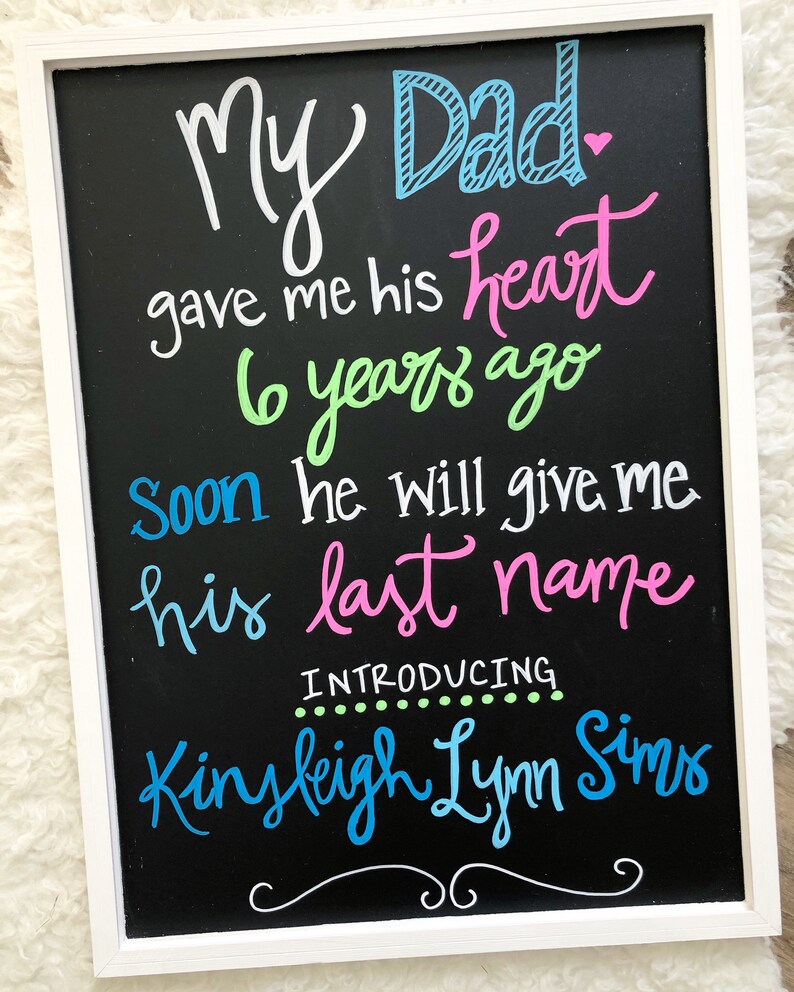 My Dad
gave me his heart
6 years ago
Soon he will give me
his last name
INTRODUCING
Kinsleigh Lynn Sims